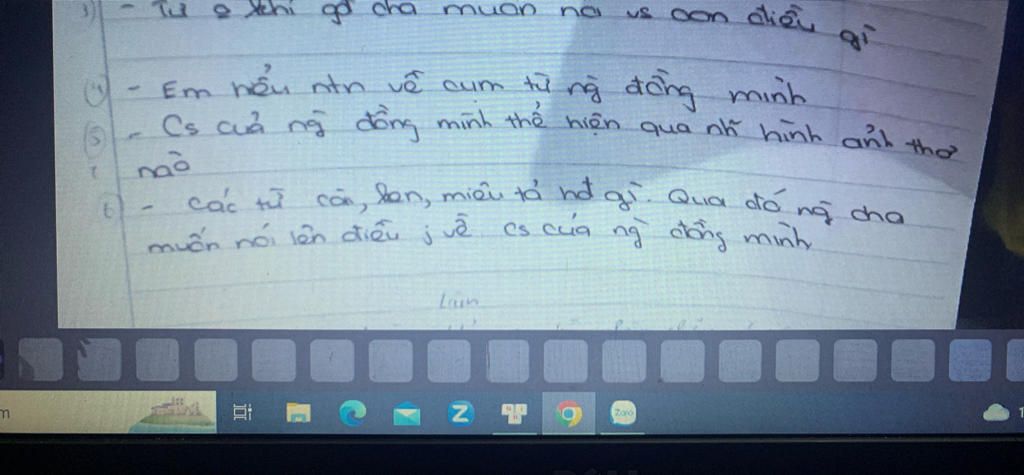 3) - Từ o khí gợi cha muon nói vs con điều gì
4) - Em hiểu ntn về cụm từ ng đồng mình
5) - Cs của ng đồng mình thể hiện qua nh hình ảnh thơ
nào
6) - Các từ cài, ken, miêu tả hđ gì. Qua đó ng cha
muốn nói lên điều j về cs của ng đồng mình
Zalo